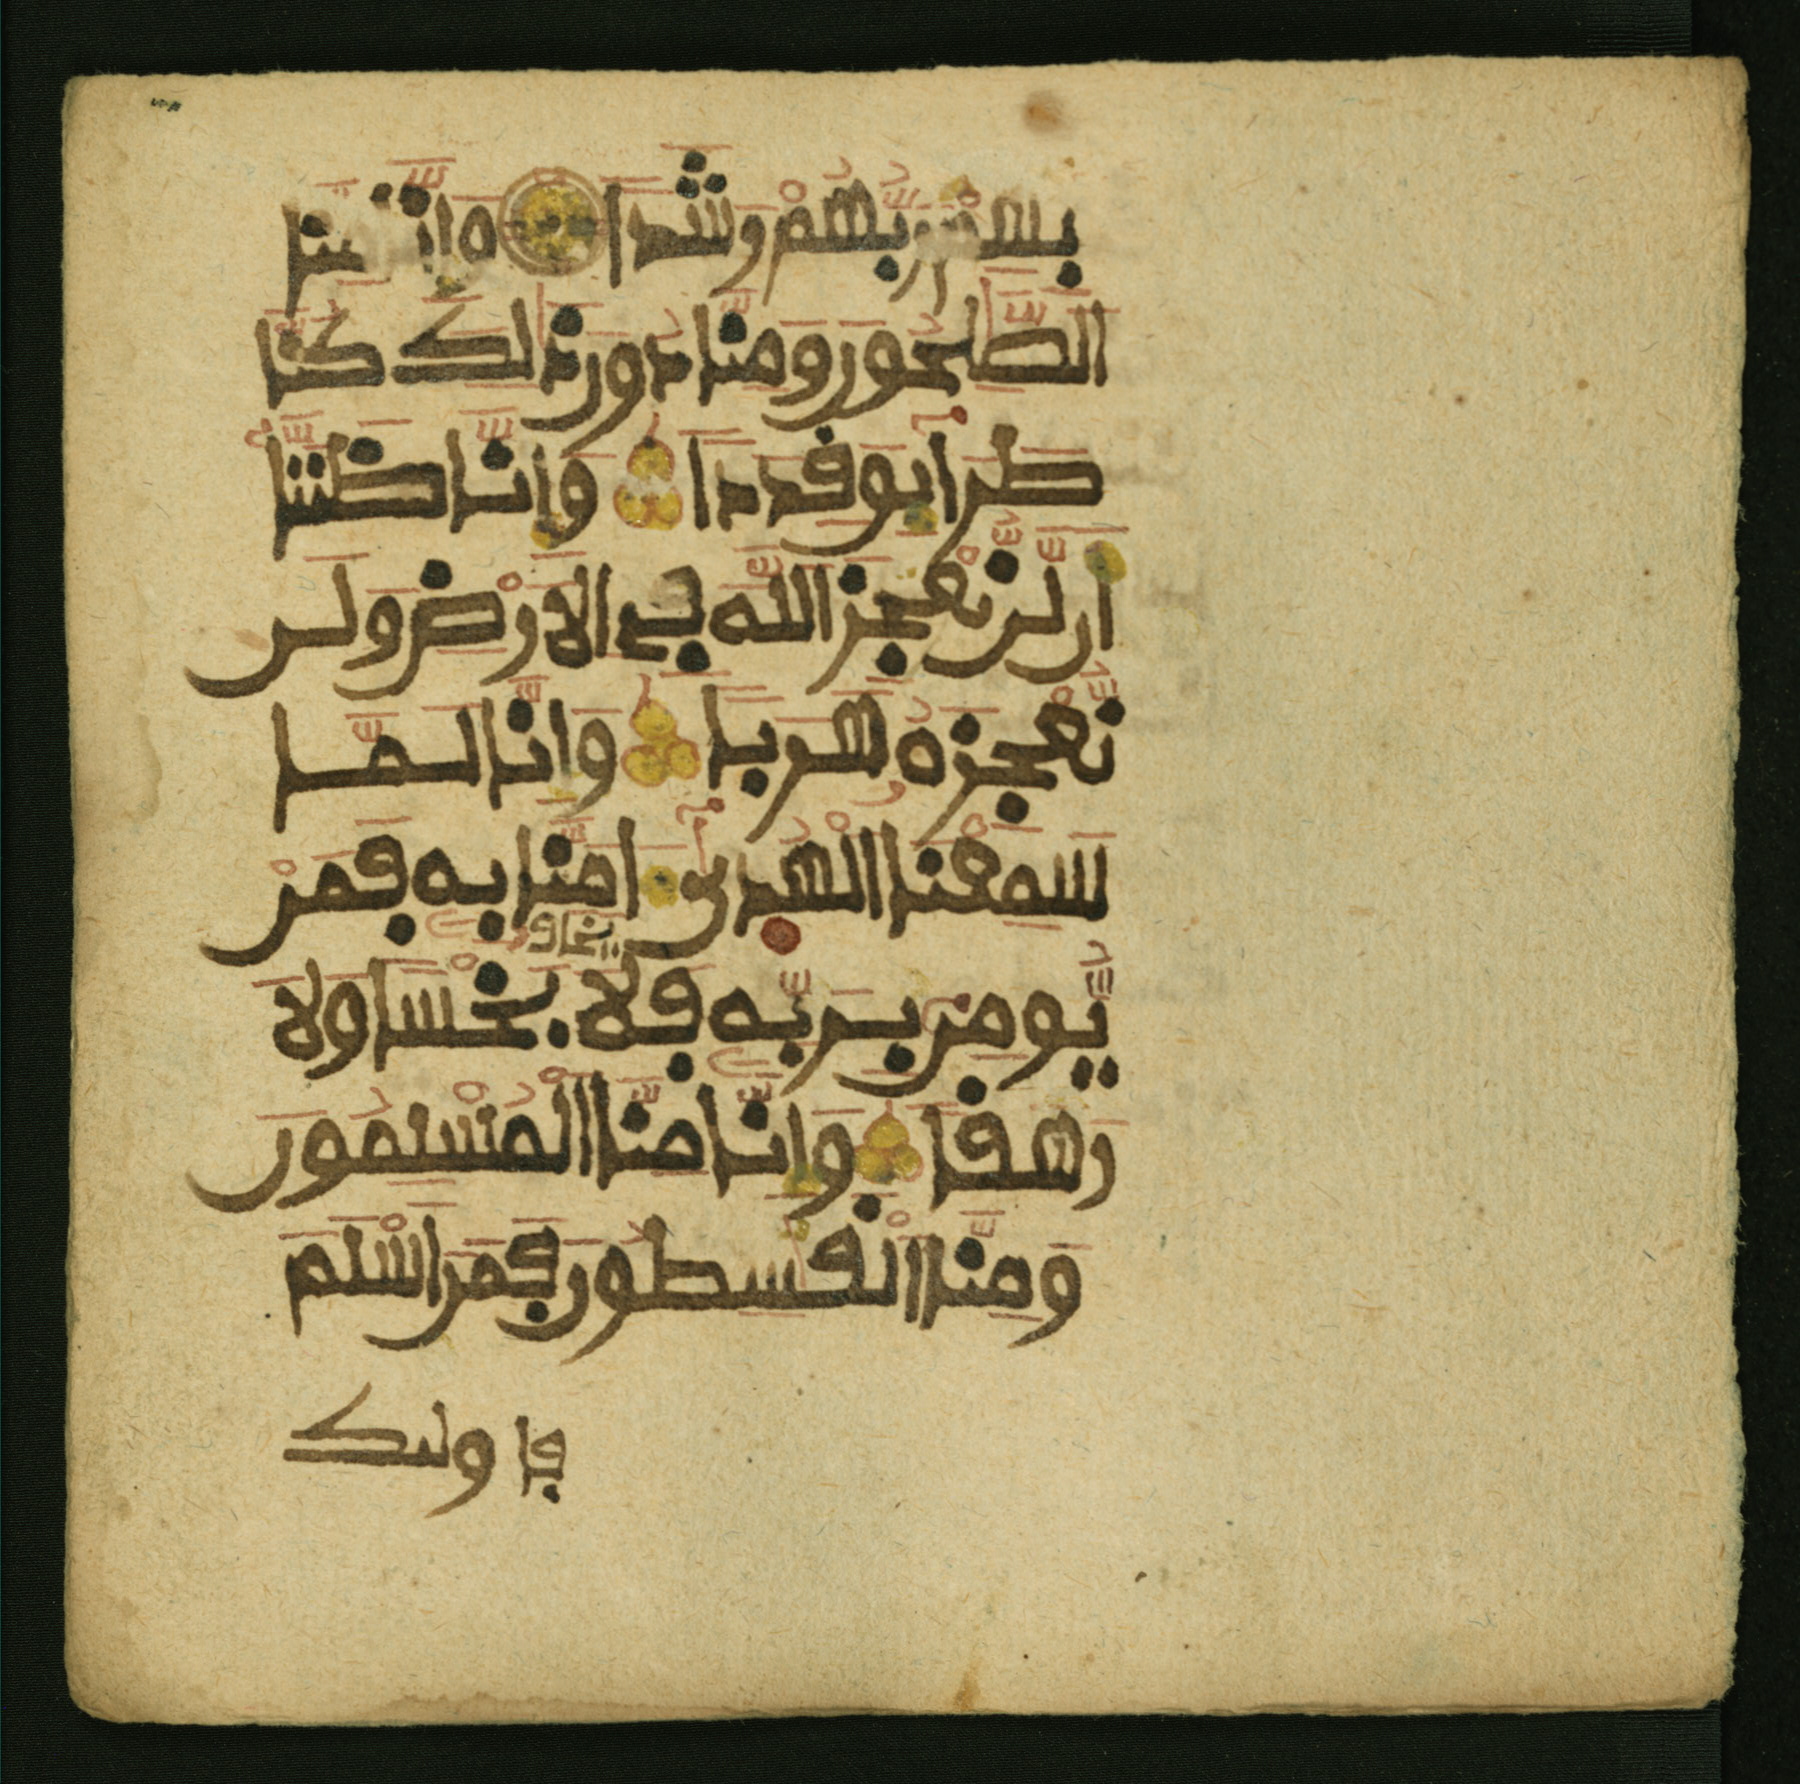 بهم ربهم رشدا وانا منا
الصلحون ومنا دون ذلك كنا
طرايق قددا وانا ظننا
ان لن نعجز الله في الارض ولن
نعجزه هربا وانا لما
سمعنا الهدى امنا به فمن
يخاف
يومن بربه فلا بخسا ولا
رهقا وانا منا المسلمون
ومنا القسطون فمن اسلم
فاولىك